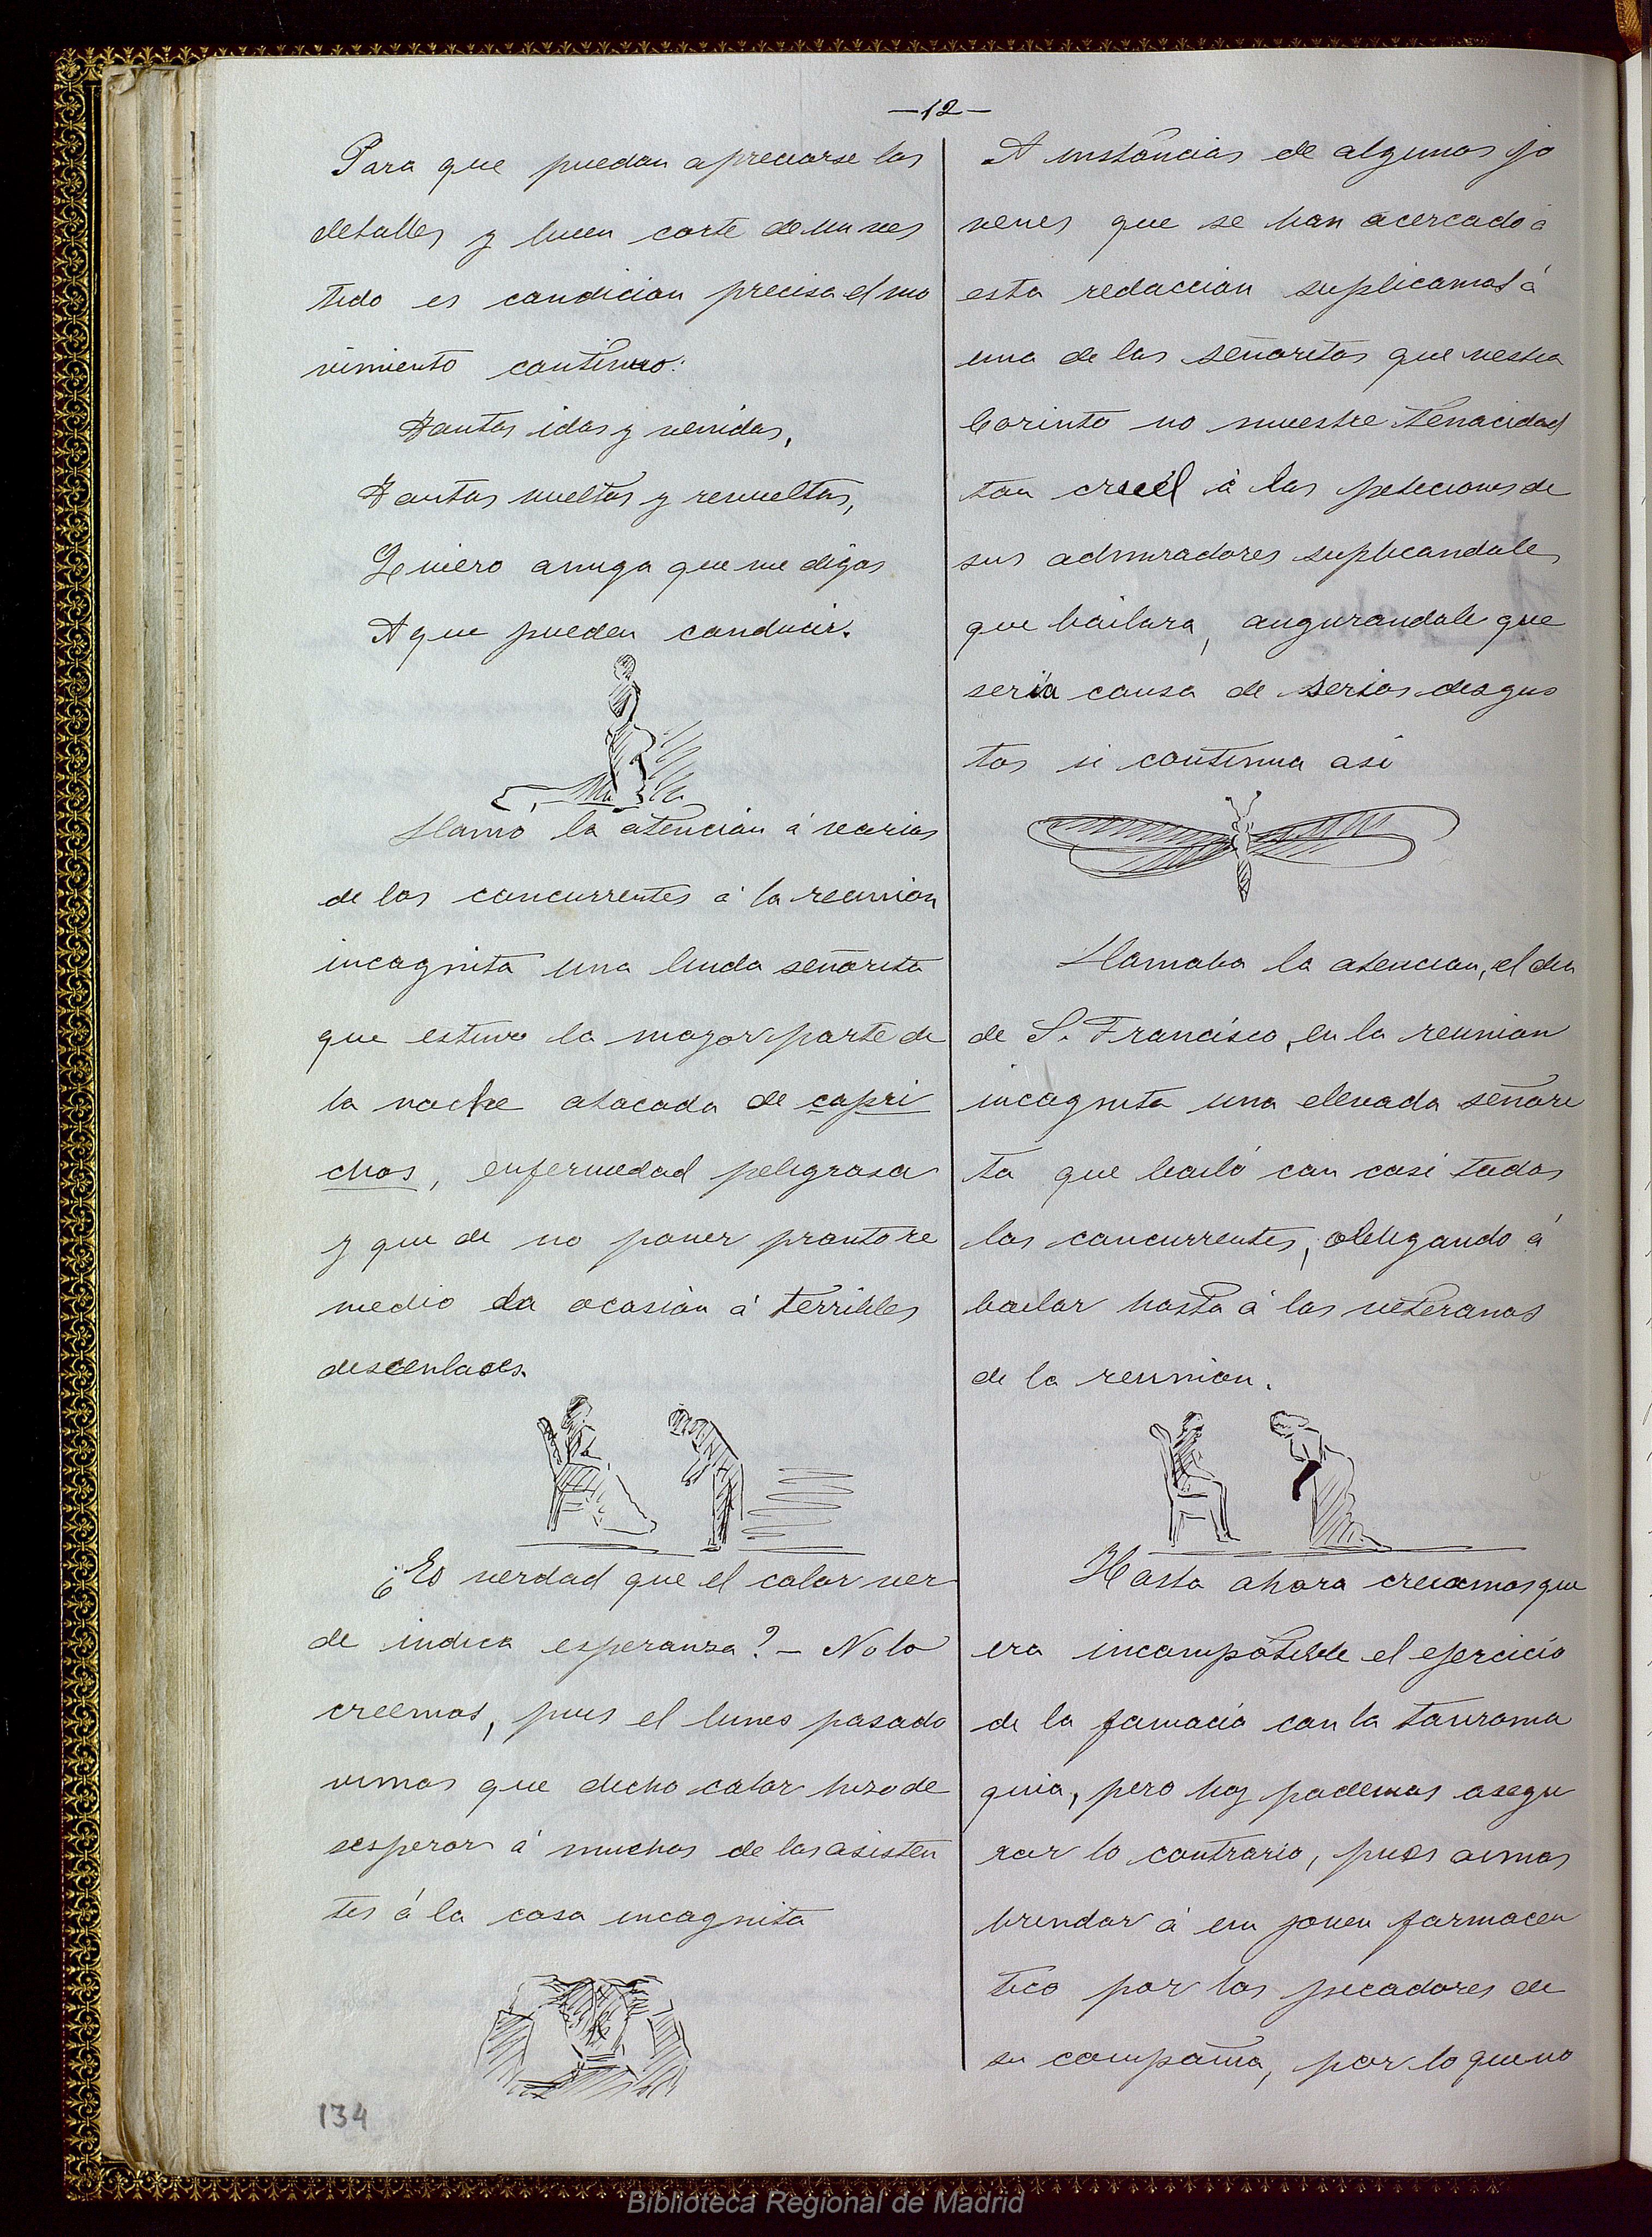 —12—
Para que puedan apreciarse los
detalles y buen corte de un ves
tido es condicion precisa el mo
vimiento continuo:
Tantas idas y venidas,
Tantas vueltas y revueltas,
Quiero amiga que me digas
A que pueden conducir.
Llamo la atencion á varios
de los concurrentes á la reunion
incognita una linda señorita
que estuvo la mayor parte de
la noche atacada de capri
chos, enfermedad peligrosa
y que de no poner pronto re
medio da ocasion á terribles
descenlaces.
¿Es verdad que el color ver
de indica esperanza? – No lo
creemos, pues el lunes pasado
vimos que dicho color hizo de
sesperar á muchos de los asisten
tes á la casa incognita
A instancias de algunos jo
venes que se han acercado á
esta redaccion suplicamos á
una de las señoritas que vestia
Corinto no muestre tenacidad
tan cruel á las peticiones de
sus admiradores suplicandole
que bailara, augurandole que
seria causa de serios desgus
tos si continua asi
Llamaba la atencion, el dia
de S. Francisco, en la reunion
incognita una elevada señori
ta que bailó con casi todos
los concurrentes, obligando á
bailar hasta á los veteranos
de la reunion.
Hasta ahora creiamos que
era incompatible el ejercicio
de la famacia con la tauroma
quia, pero hoy podemos asegu
rar lo contrario, pues oimos
brindar á un joven farmaceu
tico por los picadores de
su compañia, por lo que no
134
Biblioteca Regional de Madrid